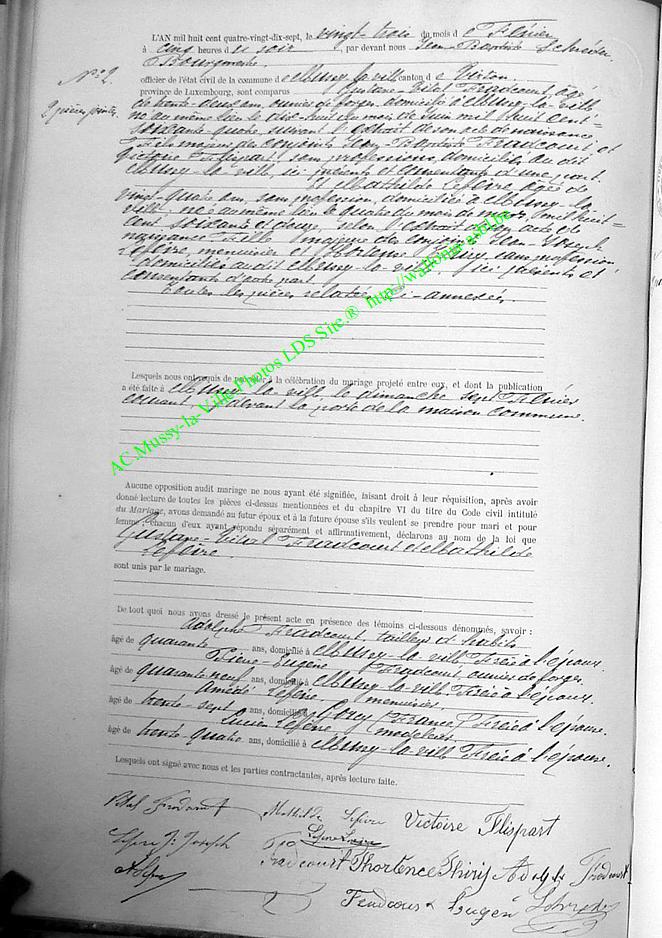 L'AN mil huit cent quatre-vingt-dix-sept, le vingt trois du mois de Février
à cinq heures du soir, par devant nous Jean-Baptiste Schréder
Bourgmestre
N° 2
officier de l'état civil de la commune de Mussy la ville canton de Virton
province de Luxembourg, sont comparus Gustave-Vital Fradcourt, âgé
2 pièces jointes
de trente-deux ans, ouvrier de forges, domicilié à Mussy-la-ville
né au même lieu le dix-huit du mois de Juin mil huit cent
soixante-quatre suivant l'extrait de son acte de naissance
Fils majeur des conjoints Jean-Baptiste Fradcourt et
Victoire Flispart, sans professions, domiciliés au dit
Mussy-la-ville, ici présents et consentants d'une part.
Et Mathilde Lefèvre âgée de
vingt-quatre ans, sans profession, domiciliée à Mussy-la
ville, née au même lieu le quatre du mois de mil huit
cent soixante et douze, selon l'extrait de son acte de
naissance Fille majeure des conjoints Jean-Joseph
Lefèvre, menuisier et Hortense Thiry, sans profession
domiciliés au dit Mussy-la-ville, ici présents et
consentants d'autre part
Toutes les pièces relatées ci-annexées.
Lesquels nous ont requis de procéder à la célébration du mariage projeté entre eux, et dont la publication
a été faite à Mussy-la-ville, le dimanche sept Février
courant, devant la porte de la maison commune.
Aucune opposition audit mariage ne nous ayant été signifiée, faisant droit à leur réquisition, après avoir
donné lecture de toutes les pièces ci-dessus mentionnées et du chapitre VI du titre du Code civil intitulé
du Mariage, avons demandé au futur époux et à la future épouse s'ils veulent se prendre pour mari et pour
femme : chacun d'eux ayant répondu séparément et affirmativement, déclarons au nom de la loi que
Gustave-Vital Fradcourt et Mathilde
Lefèvre
sont unis par le mariage.
De tout quoi nous avons dressé le présent acte en présence des témoins ci-dessous dénommés, savoir :
Adolphe Fradcourt, tailleur d'habits
âgé de quarante ans, domicilié à Mussy-la-ville Frère à l'époux.
Pierre-Eugène Fradcourt, ouvrier de forges.
âgé de quarante neuf ans, domicilié à Mussy-la-ville Frère à l'époux.
Amédé Lefèvre menuisier
âgé de trente-sept ans, domicilié à Gorcy (France) Frère à l'épouse.
Lucien Lefèvre modeleur
âgé de trente-quatre ans, domicilié à Mussy-la-ville Frère à l'épouse.
Lesquels ont signé avec nous et les parties contractantes, après lecture faite.
Vital Fradcourt Mathilde Lefèvre Victoire Flispart
Lefèvre J: Joseph
Fradcourt Hortence Thiry Adolphe Fradcourt
Fradcourt Eugéne Schréder
AC.Mussy-la-Ville Photos LDS Site.® http://wallonia-asbl.be